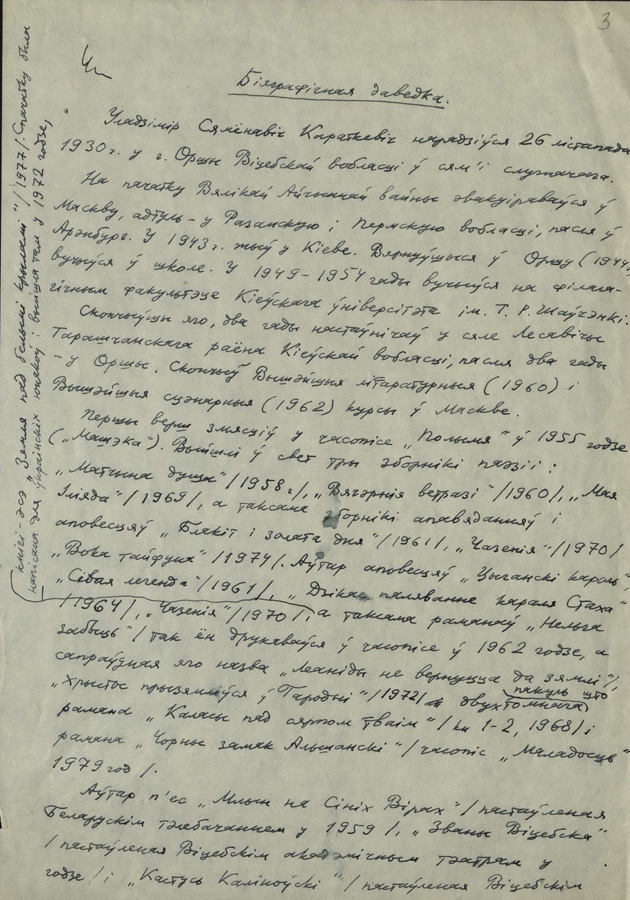 3
Біяграфічная даведка.
Уладзімір Сямёнавіч Караткевіч нарадзіўся 26 лістапада
1930 г. у г. Оршы Віцебскай вобласці ў сям'і служачага.
На пачатку Вялікай Айчыннай вайны эвакуіраваўся ў
Маскву, адтуль – у Разанскую і Пермскую вобласці, пасля ў
Арэнбург. У 1943 г. жыў у Кіеве. Вярнуўшыся ў Оршу (1944)
вучыўся ў школе. У 1949–1954 гады вучыўся на філала-
гічным факультэце Кіеўскага ўніверсітэта ім. Т. Р. Шаўчэнкі.
Скончыўшы яго, два гады настаўнічаў у сяле Лесавічы
Таращчанскага раёна Кіеўскай вобласці, пасля два гады
– у Оршы. Скончыў Вышэйшыя літаратурныя (1960) і
Вышэйшыя сцэнарныя (1962) курсы ў Маскве.
Першы верш змясціў у часопісе „Полымя“ ў 1955 годзе
(„Машэка“). Выйшлі ў свет тры зборнікі паэзіі:
„Матчына душа“ /1958 г/, „Вячэрнія ветразі“ /1960/, „Мая
Іліяда“ /1969/, а таксама зборнікі апавяданняў і
аповесцяў „Блакіт і золата дня“ /1961/, „Чазенія“ /1970/
„Вока тайфуна“ /1974/. Аўтар аповесцяў „Цыганскі кароль“,
„Сівая легенда“ /1961/, „Дзікае паляванне караля Стаха“
/1964/, „Чазенія“ /1970/, а таксама раманаў „Нельга
забыць“ /так ён друкаваўся ў часопісе ў 1962 годзе, а
сапраўдная яго назва „Леаніды не вернуцца да зямлі“/,
„Хрыстос прызямліўся ў Гародні“ /1972/ двухтомнага
пакуль што
рамана „Каласы пад сярпом тваім“ /кн 1-2, 1968/ і
рамана „Чорны замак Альшанскі“ /часопіс „Маладосць“
1979 год/.
Аўтар п'ес „Млын на Сініх Вірах“ /пастаўленая
Беларускім тэлебачаннем у 1959/, „Званы Віцебска“
/пастаўленая Віцебскім акадэмічным тэатрам у
годзе/ і „Кастусь Каліноўскі“ /пастаўленая Віцебскім
кнігі-эсэ „Зямля пад белымі крыламі“ /1977/. Спачатку была
напісана для ўкраінскіх юнакоў і выйшла там у 1972 годзе,